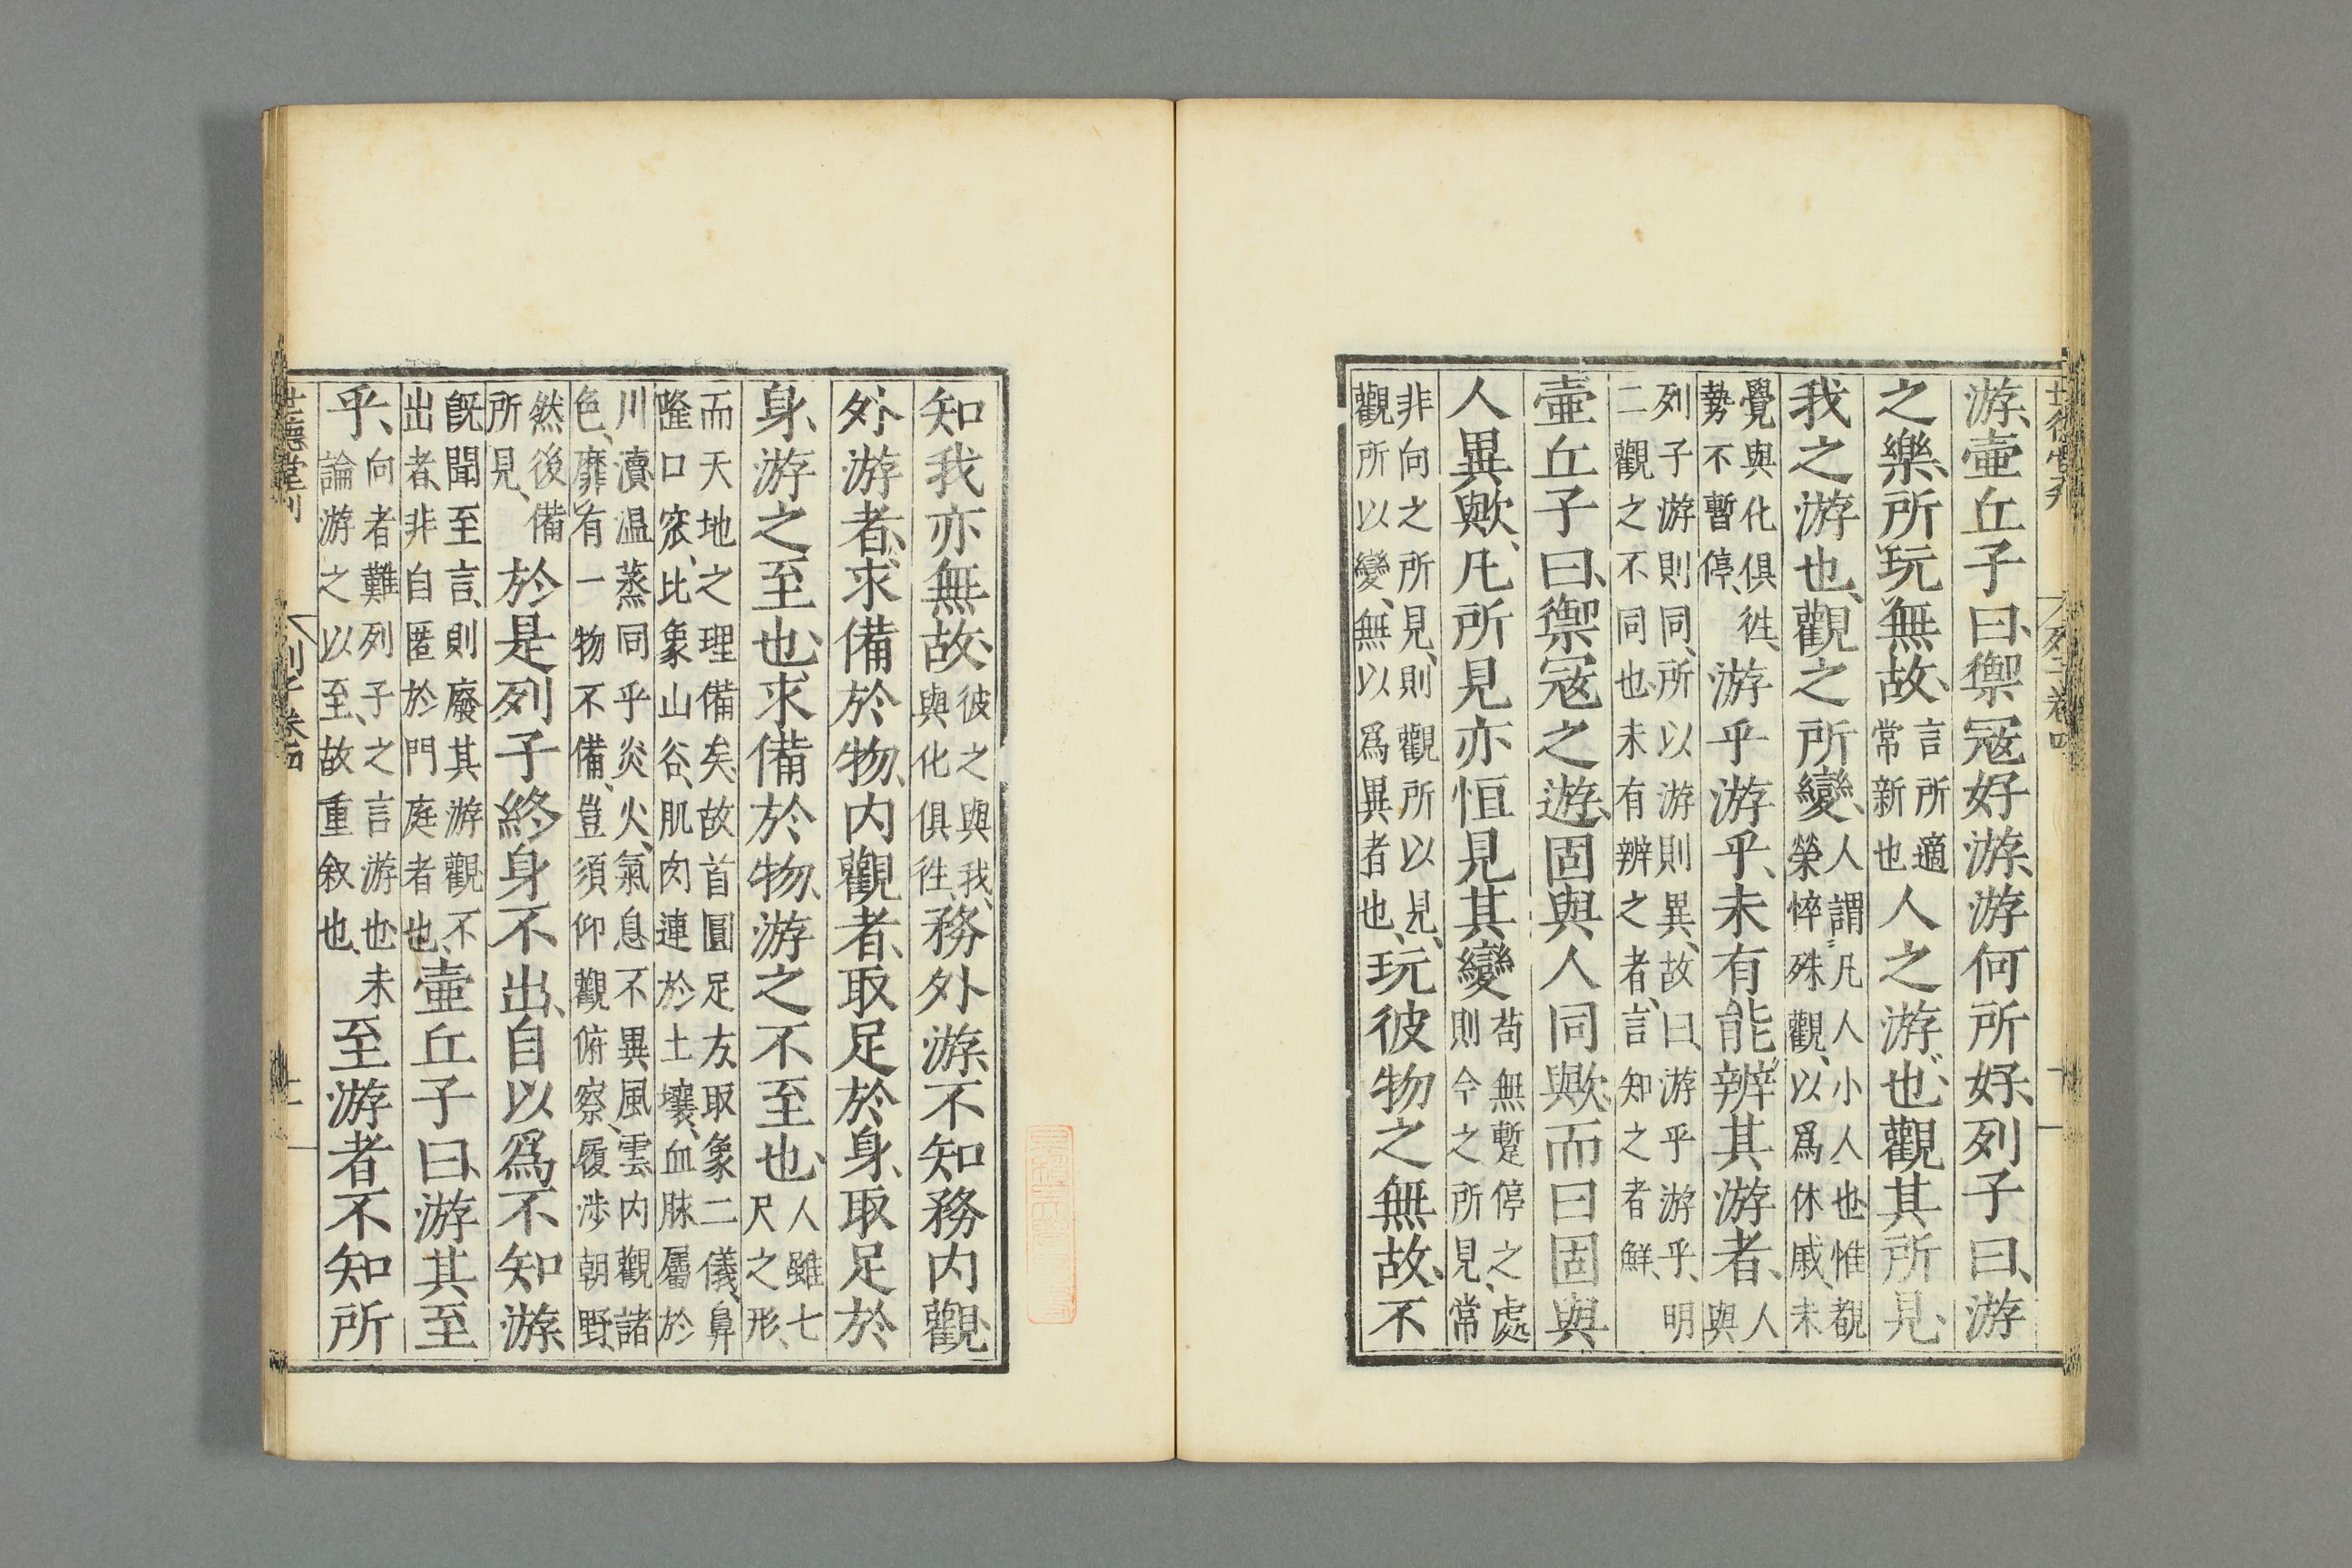 游、壷丘子曰、禦冦好游、游何所好、列子曰、游
之樂、所玩無故、言所適常新也人之游也、觀其所見、
我之游也、觀之所變、人謂凡人小人也惟覩榮悴殊觀、以爲休戚、未
覺與化俱徃、勢不暫停、游乎游乎、未有能辨其游者、人與
列子游則同、所以游則異、故曰、游乎游乎、明
二觀之不同也、未有辨之者、言知之者鮮、
壷丘子曰、禦冦之遊、固與人同歟、而曰固與
人異歟、凡所見亦恒見其變苟無蹔停之處則今之所見、常
非向之所見、則觀所以見、觀所以變、無以爲異者也、玩彼物之無故、不
知我亦無故、彼之與我、與化俱徃、務外游、不知務内觀、
外游者、求備於物、内觀者、取足於身、取足於
身、游之至也、求備於物、游之不至也、人雖七尺之形、
而天地之理備矣、故首圓足方取象二儀、鼻
隆口窊、比象山谷、肌肉連於土壤、血脉屬於
川瀆、温蒸同乎炎火、氣息不異風雲、内觀諸
色、靡有一物不備、豈須仰觀俯察、履渉朝野、
然後備所見、於是列子終身不出、自以爲不知游、
旣聞至言、則廢其游觀、不出者、非自匿於門庭者也、壷丘子曰、游其至
乎、向者難列子之言游也、未論游之以至、故重叙也、至游者不知所
列子卷四